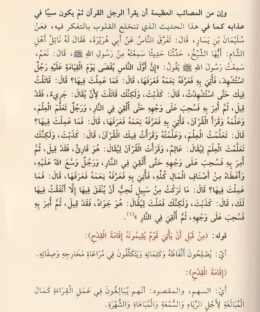 وإن من المصائب العظيمة أن يقرأ الرجل القرآن ثم يكون سببًا في
عذابه كما في هذا الحديث الذي تنخلع القلوب بالتفكير فيه، فعنْ
سُلَيْمَانَ بْنِ يَسَارٍ، قَالَ: تَفَرَّقَ النَّاسُ عَنْ أَبِي هُرَيْرَةَ، فَقَالَ لَهُ نَاتِلُ أَهْلِ
الشَّامِ: أَيُّهَا الشَّيْخُ، حَدِّثْنَا حَدِيثًا سَمِعْتَهُ مِنْ رَسُولِ اللهِ ﷺ، قَالَ: نَعَمْ،
سَمِعْتُ رَسُولَ اللهِ ﷺ يَقُولُ: «إِنَّ أَوَّلَ النَّاسِ يُقْضَى يَوْمَ الْقِيَامَةِ عَلَيْهِ رَجُلٌ
اسْتُشْهِدَ، فَأُتِيَ بِهِ فَعَرَّفَهُ نِعَمَهُ فَعَرَفَهَا، قَالَ: فَمَا عَمِلْتَ فِيهَا؟ قَالَ:
قَاتَلْتُ فِيكَ حَتَّى اسْتُشْهِدْتُ، قَالَ: كَذَبْتَ، وَلَكِنَّكَ قَاتَلْتَ لِأَنْ يُقَالَ: جَرِيءٌ، فَقَدْ
قِيلَ، ثُمَّ أُمِرَ بِهِ فَسُحِبَ عَلَى وَجْهِهِ حَتَّى أُلْقِيَ فِي النَّارِ، وَرَجُلٌ تَعَلَّمَ الْعِلْمَ،
وَعَلَّمَهُ وَقَرَأَ الْقُرْآنَ، فَأُتِيَ بِهِ فَعَرَّفَهُ نِعَمَهُ فَعَرَفَهَا، قَالَ: فَمَا عَمِلْتَ فِيهَا؟
قَالَ: تَعَلَّمْتُ الْعِلْمَ، وَعَلَّمْتُهُ وَقَرَأْتُ فِيكَ الْقُرْآنَ، قَالَ: كَذَبْتَ، وَلَكِنَّكَ
تَعَلَّمْتَ الْعِلْمَ لِيُقَالَ: عَالِمٌ، وَقَرَأْتَ الْقُرْآنَ لِيُقَالَ: هُوَ قَارِئٌ، فَقَدْ قِيلَ، ثُمَّ أُمِرَ
بِهِ فَسُحِبَ عَلَى وَجْهِهِ حَتَّى أُلْقِيَ فِي النَّارِ، وَرَجُلٌ وَسَّعَ اللهُ عَلَيْهِ،
وَأَعْطَاهُ مِنْ أَصْنَافِ الْمَالِ كُلِّهِ، فَأُتِيَ بِهِ فَعَرَّفَهُ نِعَمَهُ فَعَرَفَهَا، قَالَ: فَمَا
عَمِلْتَ فِيهَا؟ قَالَ: مَا تَرَكْتُ مِنْ سَبِيلٍ تُحِبُّ أَنْ يُنْفَقَ فِيهَا إِلَّا أَنْفَقْتُ فِيهَا
لَكَ، قَالَ: كَذَبْتَ، وَلَكِنَّكَ فَعَلْتَ لِيُقَالَ: هُوَ جَوَادٌ، فَقَدْ قِيلَ، ثُمَّ أُمِرَ بِهِ
فَسُحِبَ عَلَى وَجْهِهِ، ثُمَّ أُلْقِيَ فِي النَّارِ»(١).
قوله: (مِنْ قَبْلِ أَنْ يَأْتِيَ قَوْمٌ يُقِيمُونَهُ إِقَامَةَ الْقِدْحِ):
أي: يُصْلِحُونَ أَلْفَاظَهُ وَكَلِمَاتِهِ، وَيَتَكَلَّفُونَ فِي مُرَاعَاةِ مَخَارِجِهِ وَصِفَاتِهِ.
(إِقَامَةَ الْقِدْحِ):
أي: السهم، والمقصود: أنهم يُبَالِغُونَ فِي عَمَلِ الْقِرَاءَةِ كَمَالَ
الْمُبَالَغَةِ لِأَجْلِ الرِّيَاءِ وَالسُّمْعَةِ وَالْمُبَاهَاةِ وَالشُّهْرَةِ.